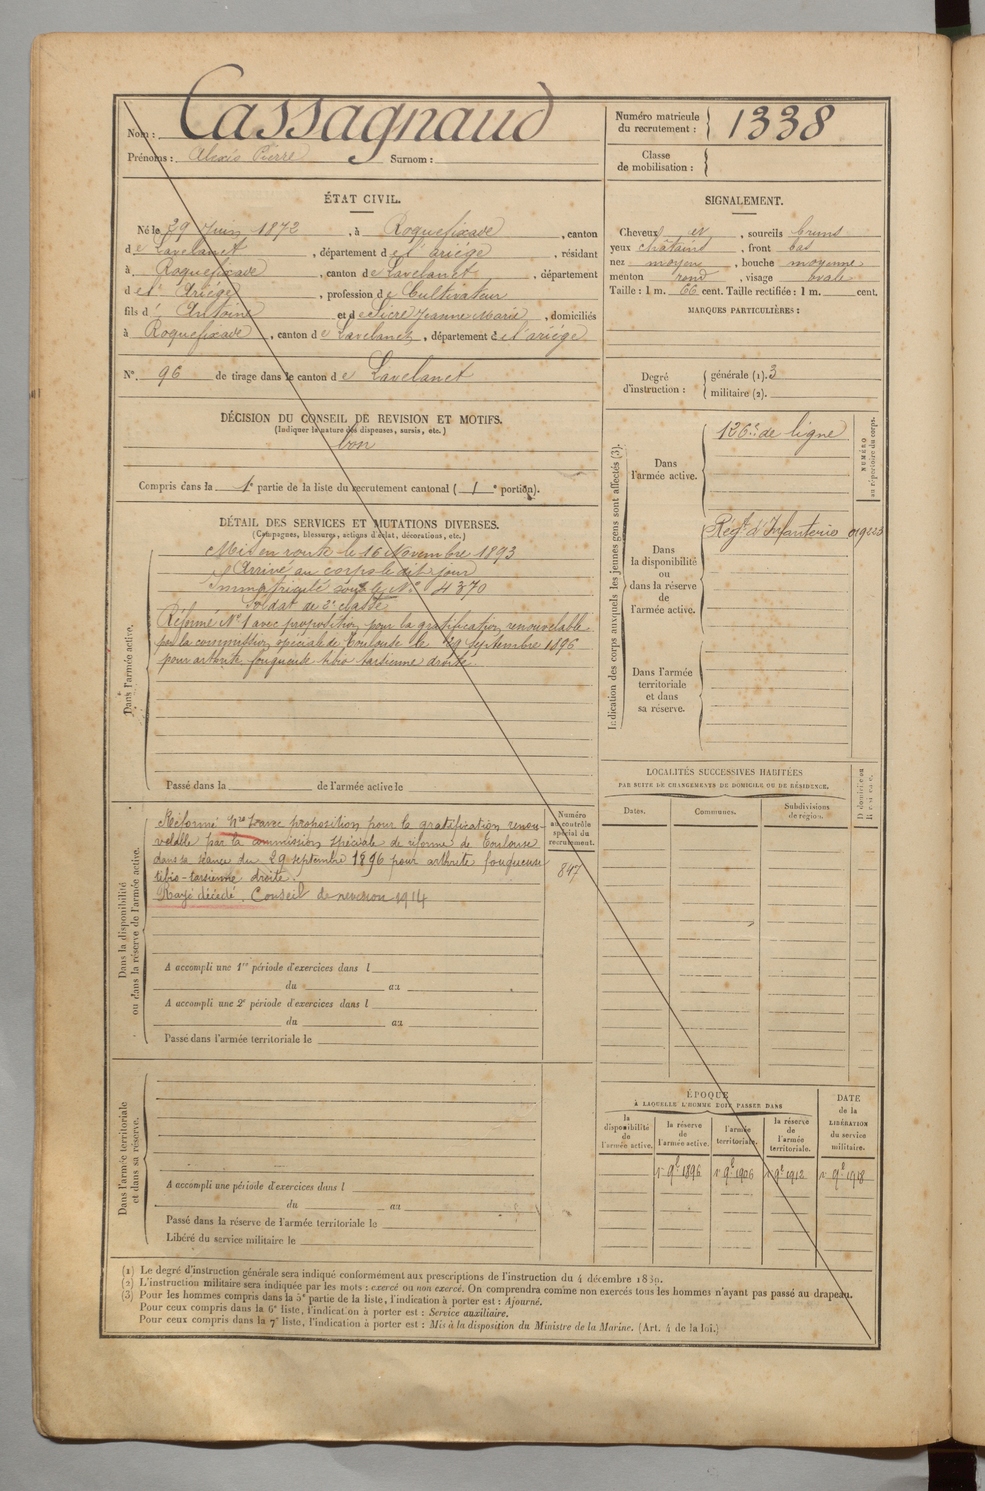 Nom : Cassagnaud
Prénoms : Alexis Pierre Surnom :
Numéro matricule du recrutement : 1338
Classe de mobilisation :
ÉTAT CIVIL.
Né le 29 Juin 1872, à Roquefixade, canton
de Lavelanet, département de l'ariége, résidant
à Roquefixade, canton de Lavelanet, département
de l' Ariége, profession de Cultivateur
fils d' Antoine et de Sicre Jeanne Marie, domiciliés
à Roquefixade, canton de Lavelanet, département de l'ariége
N°. 96 de tirage dans le canton de Lavelanet
DÉCISION DU CONSEIL DE REVISION ET MOTIFS.
(Indiquer la nature des dispenses, sursis, etc.)
bon
Compris dans la 1e partie de la liste du recrutement cantonal (1e portion).
DÉTAIL DES SERVICES ET MUTATIONS DIVERSES.
(Campagnes, blessures, actions d'éclat, décorations, etc.)
Dans l'armée active.
Mis en route le 16 Novembre 1893
Arrivé au corps le dit jour
Immatriculé sous le N° 4370
Soldat de 2e classe
Réformé N° 1 avec proposition pour la gratification renouvelable
par la commission spéciale de Toulouse le 29 Septembre 1896
pour arthrite fongueuse tibio tarsienne droite.
Passé dans la de l'armée active le
Dans la disponibilité ou dans la réserve de l'armée active.
Réformé No 1 avec proposition pour la gratification renou-
velable par la commission spéciale de réforme de Toulouse
dans sa séance du 29 septembre 1896 pour arthrite fongueuse
tibio-tarsienne droite.
Rayé décédé. Conseil de revision 1914
Numéro au contrôle spécial du recrutement.
847
A accompli une 1re période d'exercices dans l
du au
A accompli une 2e période d'exercices dans l
du au
Passé dans l'armée territoriale le
Dans l'armée territoriale et dans sa réserve.
A accompli une période d'exercices dans l
du au
Passé dans la réserve de l'armée territoriale le
Libéré du service militaire le
SIGNALEMENT.
Cheveux et, sourcils bruns
yeux châtains, front bas
nez moyen, bouche moyenne
menton rond, visage ovale
Taille : 1 m. 66 cent. Taille rectifiée : 1 m. cent.
MARQUES PARTICULIÈRES :
Degré d'instruction : générale (1). 3
militaire (2).
Indication des corps auxquels les jeunes gens sont affectés (3).
Dans l'armée active.
126e de ligne
NUMÉRO au répertoire du corps.
Dans la disponibilité ou dans la réserve de l'armée active.
Regt d'Infanterie 019223
Dans l'armée territoriale et dans sa réserve.
LOCALITÉS SUCCESSIVES HABITÉES
PAR SUITE DE CHANGEMENTS DE DOMICILE OU DE RÉSIDENCE.
Dates. Communes. Subdivisions de région.
ÉPOQUE
À LAQUELLE L'HOMME DOIT PASSER DANS
la disponibilité de l'armée active.
la réserve de l'armée active.
l'armée territoriale.
la réserve de l'armée territoriale.
DATE de la LIBÉRATION du service militaire.
1r 9e 1896 1r 9e 1906 1r 9e 1912 1r 9e 1918
(1) Le degré d'instruction générale sera indiqué conformément aux prescriptions de l'instruction du 4 décembre 1889.
(2) L'instruction militaire sera indiquée par les mots : exercé ou non exercé. On comprendra comme non exercés tous les hommes n'ayant pas passé au drapeau.
(3) Pour les hommes compris dans la 5e partie de la liste, l'indication à porter est : Ajourné.
Pour ceux compris dans la 6e liste, l'indication à porter est : Service auxiliaire.
Pour ceux compris dans la 7e liste, l'indication à porter est : Mis à la disposition du Ministre de la Marine. (Art. 4 de la loi.)